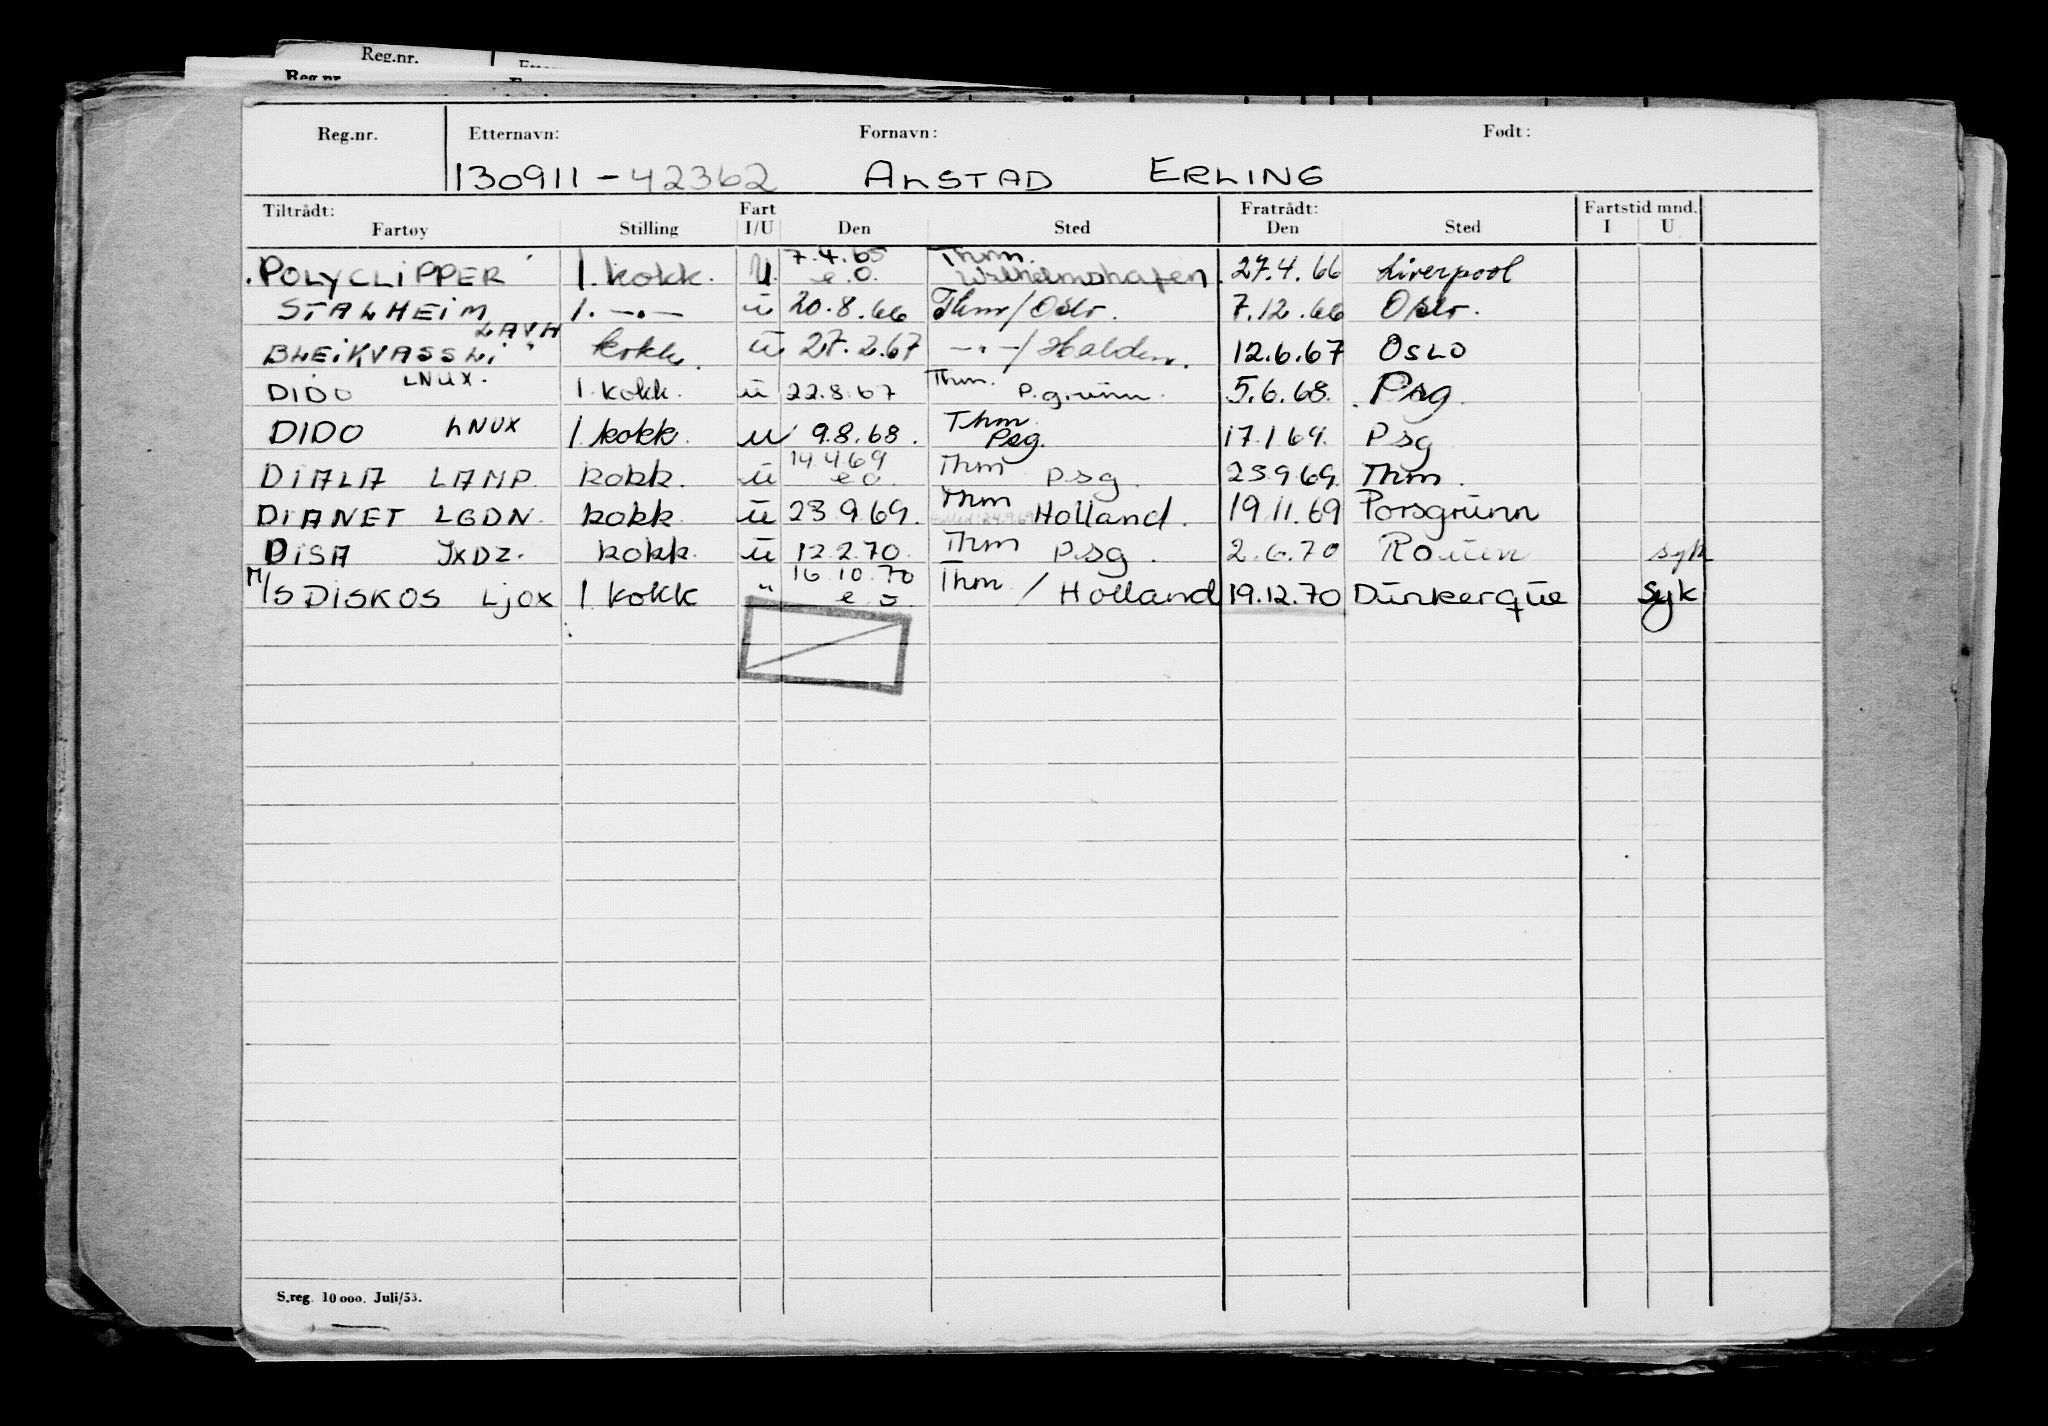 Reg.nr.
Reg.nr.
Reg.nr. Etternavn: Fornavn: Født:
130911-42362 ALSTAD ERLING
Tiltrådt: Fart Fratrådt: Fartstid mnd.
Fartøy Stilling I/U Den Sted Den Sted I U
POLYCLIPPER 1. kokk. U. 7.4.65 e.o. Thm. Wilhelmshafen 27.4.66 Liverpool
STALHEIM 1. -"- u 20.8.66 Thm/Oslo. 7.12.66 Oslo.
BLEIKVASSLI LAVH kokk. u 27.2.67 -"-/Halden. 12.6.67 OSLO
DIDO LNUX. 1. kokk. u 22.8.67 Thm. P.grunn. 5.6.68. Psg.
DIDO LNUX 1 kokk. u 9.8.68. Thm. Psg. 17.1.69. Psg
DIALA LAMP. kokk. u 14.4.69 e o. Thm Psg. 23.9.69. Thm.
DIANET LGDN. kokk. u 23.9.69. Thm Holland. 19.11.69 Porsgrunn
DISA JXDZ. kokk. u 12.2.70. Thm Psg. 2.6.70 Rouen syk
M/S DISKOS LJOX 1. kokk " 16.10.70 e o Thm / Holland 19.12.70 Dunkerque Syk
S.reg. 10 000. Juli/53.